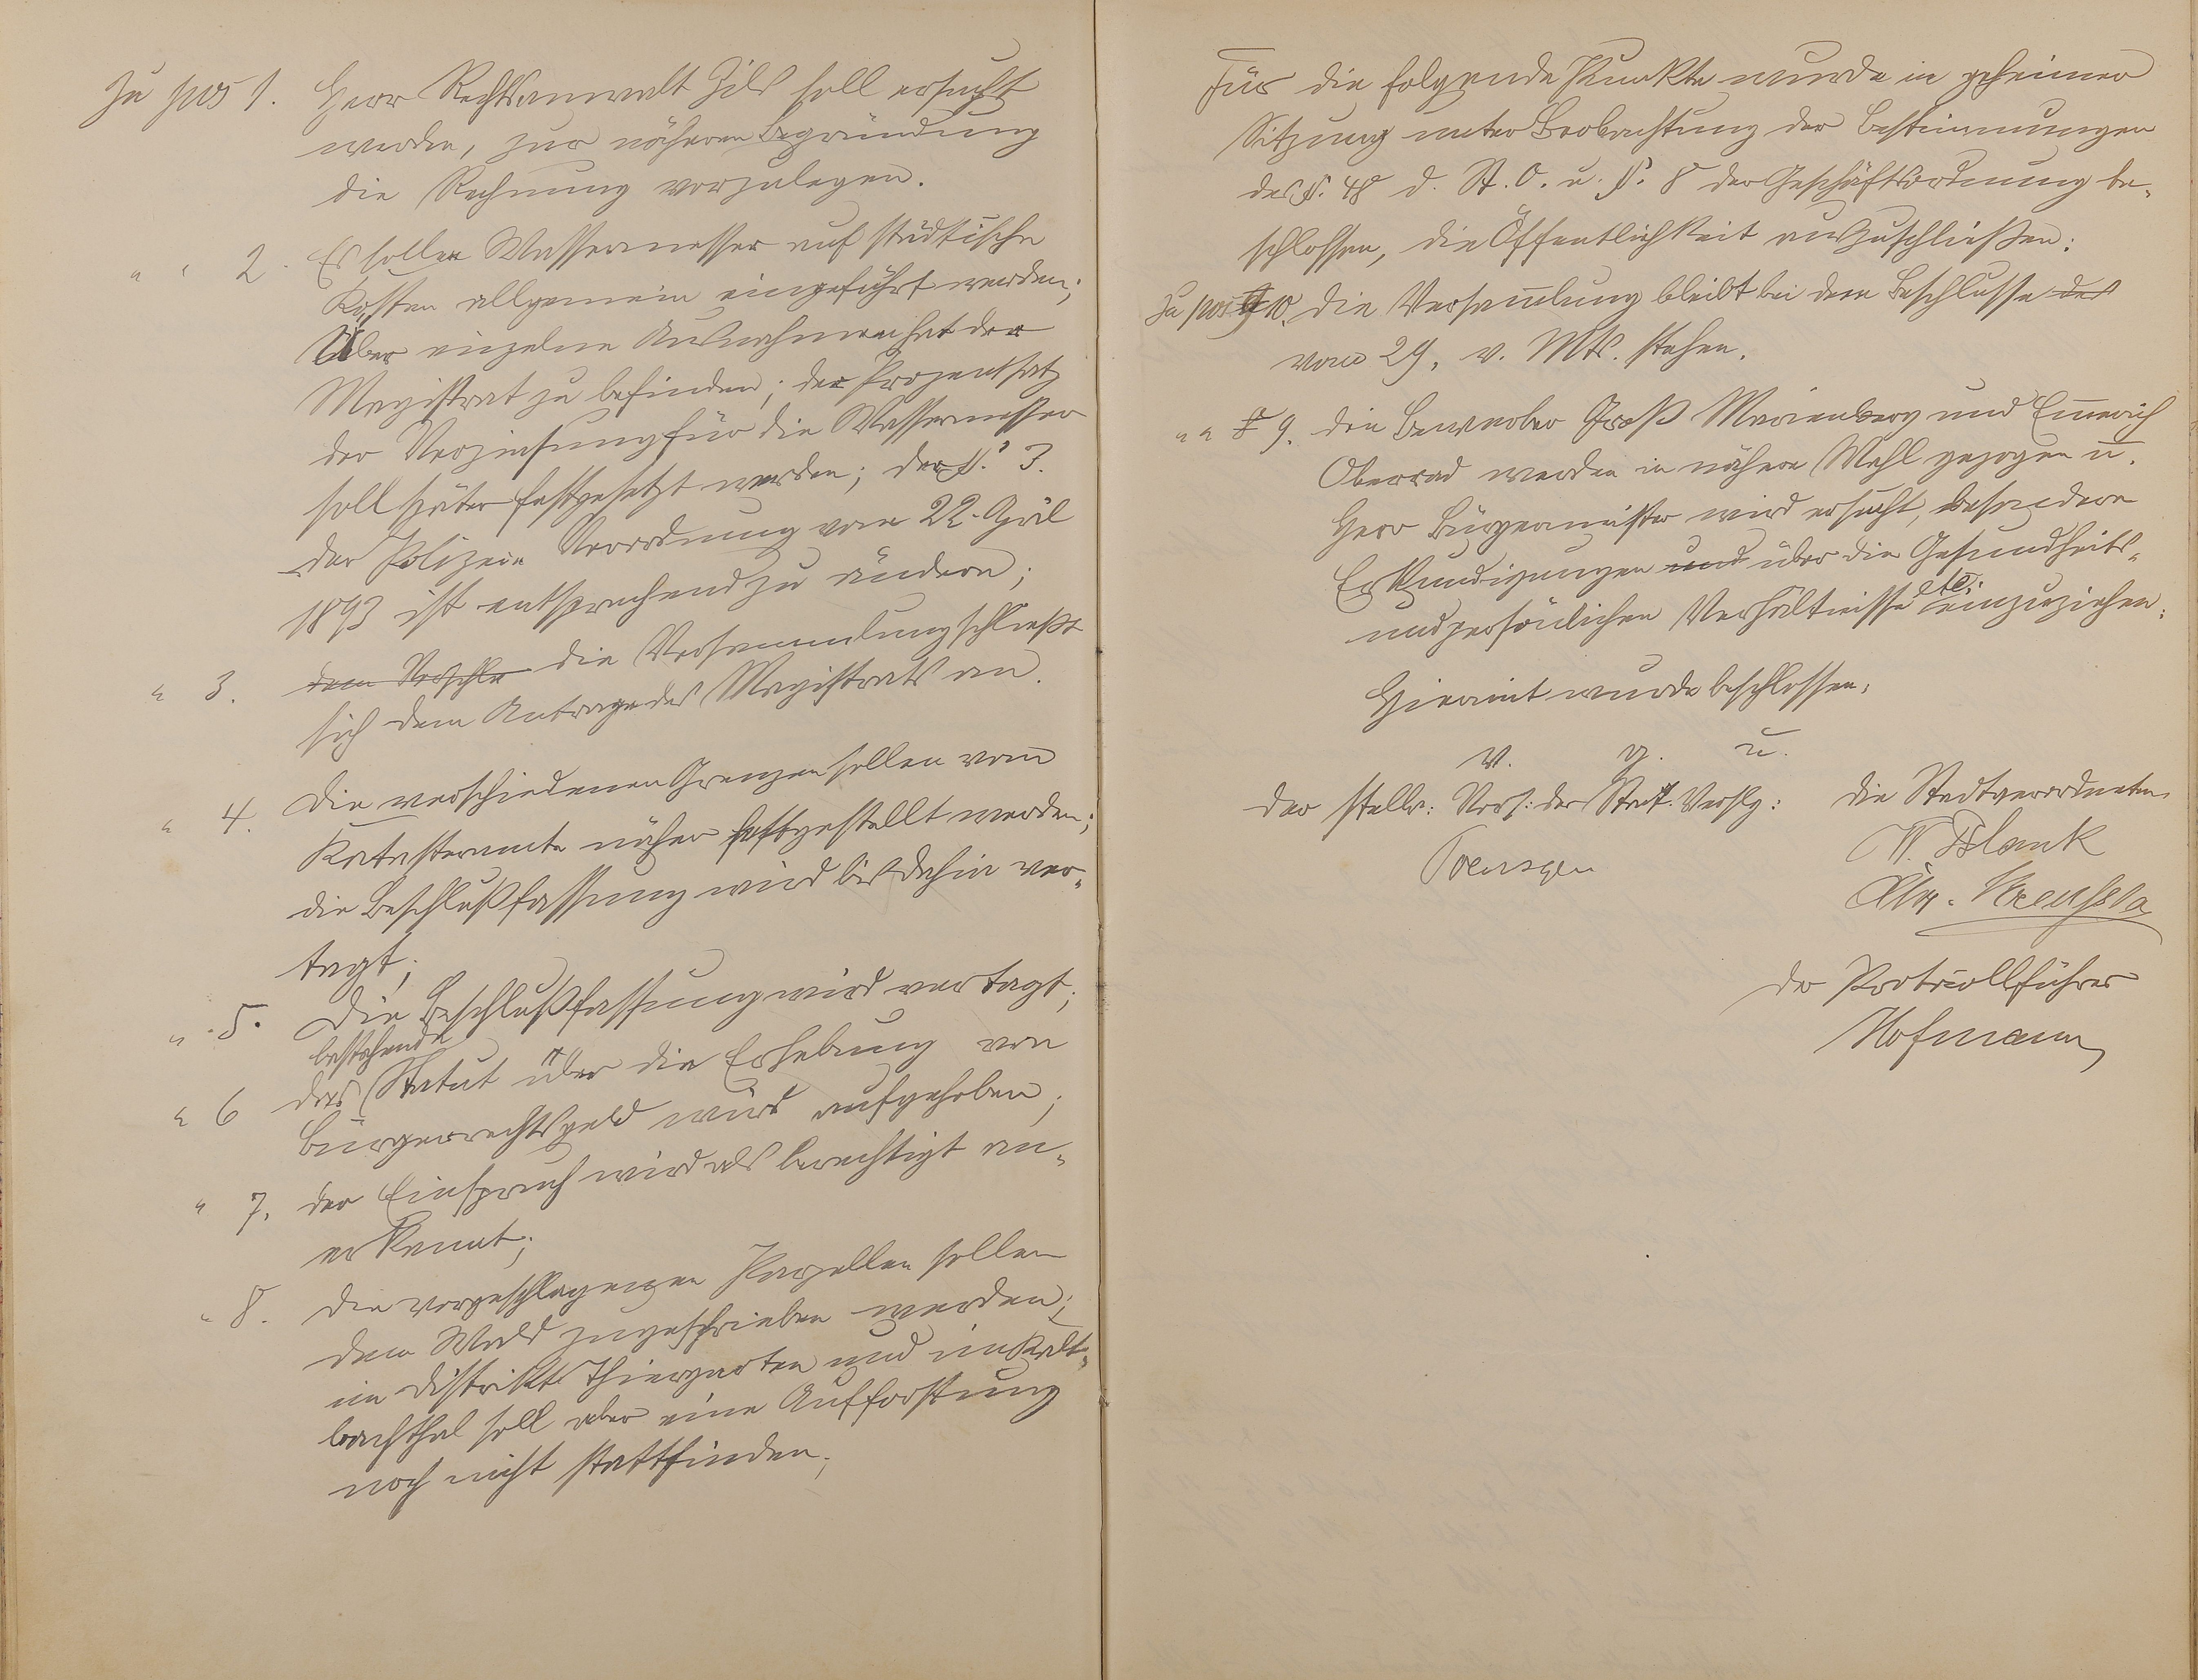 Zu pos 1. Herr Rechtsanwalt Zils soll ersucht
werden, zur näheren Begründung
die Rechnung vorzulegen.
" " 2. Es sollen Wassermesser auf städtische
Kosten allgemein eingeführt werden;
Über einzelne Ausnahmen hat der
Magistrat zu befinden; der Prozentsatz
der Verzinsung für die Wassermesser
soll später festgesetzt werden; der §. 3.
der Polizei- Verordnung vom 22. April
1893 ist entsprechend zu ändern;
" 3. dem Beschlu die Versammlung schließt
sich dem Antrage des Magistrats an.
" 4. Die verschiedenen Grenzen sollen vom
Katasteramte näher festgestellt werden;
die Beschlußfassung wird bis dahin ver-
tagt;
" 5. Die Beschlußfassung wird vertagt;
bestehende
" 6 das Statut über die Erhebung von
Bürgerrechtsgeld wird aufgehoben;
" 7. der Einspruch wird als berechtigt an-
erkannt;
" 8. die vorgeschlagenen Parzellen sollen
dem Wald zugeschrieben werden;
im Distrikt Thiergarten und im Kalt-
bachthal soll aber eine Aufforstung
noch nicht stattfinden;
Für die folgende Punkte wurde in geheimer
Sitzung unter Beobachtung der Bestimmungen
des §. 48 d. St. O. u. §. 8 der Geschäftsordnung be-
schlossen, die Öffentlichkeit auszuschließen:
Zu pos 9 10. die Versam̅lung bleibt bei dem Beschlusse des
vom 29. v. Mts. stehen.
" " 8 9. die Bewerber Groß Marienberg und Em̅erich
Oberrad werden in nähere Wahl gezogen u.
Herr Bürgermeister wird ersucht, besondere
Erkundigungen und über die Gesundheits-
und persönlichen Verhältnisse etc. einzuziehen.
Hiermit wurde beschlossen.
v. g. u.
Der stellv: Vors: der Stadtv. Verslg: Die Stadtverordneten
W. Blank
der Protocollführer
Hofmann